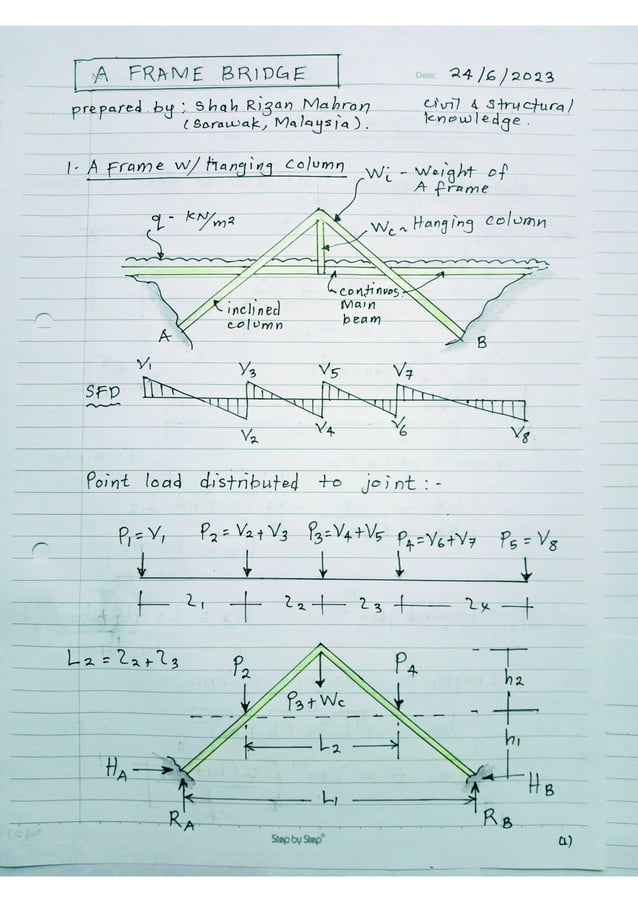 A FRAME BRIDGE
Date: 24/6/2023
prepared by: Shah Rizan Mahran
(Sarawak, Malaysia).
Civil & Structural
Knowledge.
1. A Frame W/ Hanging Column
Wi - Weight of
A frame
q - KN/m2
Wc - Hanging column
inclined
column
continuos
Main
beam
A
B
SFD
V1
V3
V5
V7
V2
V4
V6
V8
Point load distributed to joint :-
P1 = V1
P2 = V2 + V3
P3 = V4 + V5
P4 = V6 + V7
P5 = V8
L2 =
P2
P4
P3 + Wc
h2
L2
h1
HA
HB
L1
RA
RB
Step by Step®
(1)